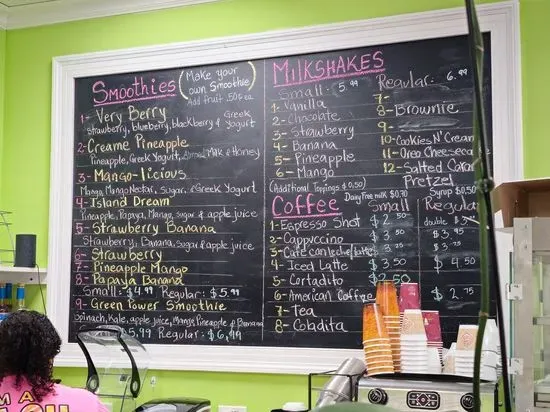 Smoothies (Make your own Smoothie
Add fruit .50¢ea.
1- Very Berry
Strawberry, blueberry, blackberry & Greek yogurt
2- Creame Pineapple
Pineapple, Greek Yogurt, Almond Milk & Honey
3- Mango-licious
Mango, Mango Nectar, Sugar, & Greek Yogurt
4- Island Dream
Pineapple, Papaya, Mango, sugar & apple juice
5- Strawberry Banana
Strawberry, Banana, Sugar & apple juice
6- Strawberry
7- Pineapple Mango
8- Papaya Banana
Small: $4.99 Regular: $5.99
9- Green Power Smoothie
Spinach, Kale, apple juice, Mango, Pineapple & Banana
$5.99 Regular: $6.99
MILKSHAKES
Small: 5.99 Regular: 6.99
1- Vanilla
2- Chocolate
3- Strawberry
4- Banana
5- Pineapple
6- Mango
7-
8- Brownie
9-
10- Cookies N' Cream
11- Oreo Cheesecake
12- Salted Caramel Pretzel
(Additional Toppings $0.50)
Syrup $0.50
Coffee
Dairy Free milk $0.70
Small Regular
1- Espresso Shot $2.50 double $3.
2- Cappuccino $3.50 $3.95
3- Cafe con leche (latte) $3. $3.75
4- Iced Latte $3.50 $4.50
5- Cortadito $2.50
6- American Coffee $2.75
7- Tea
8- Coladita
I'M A